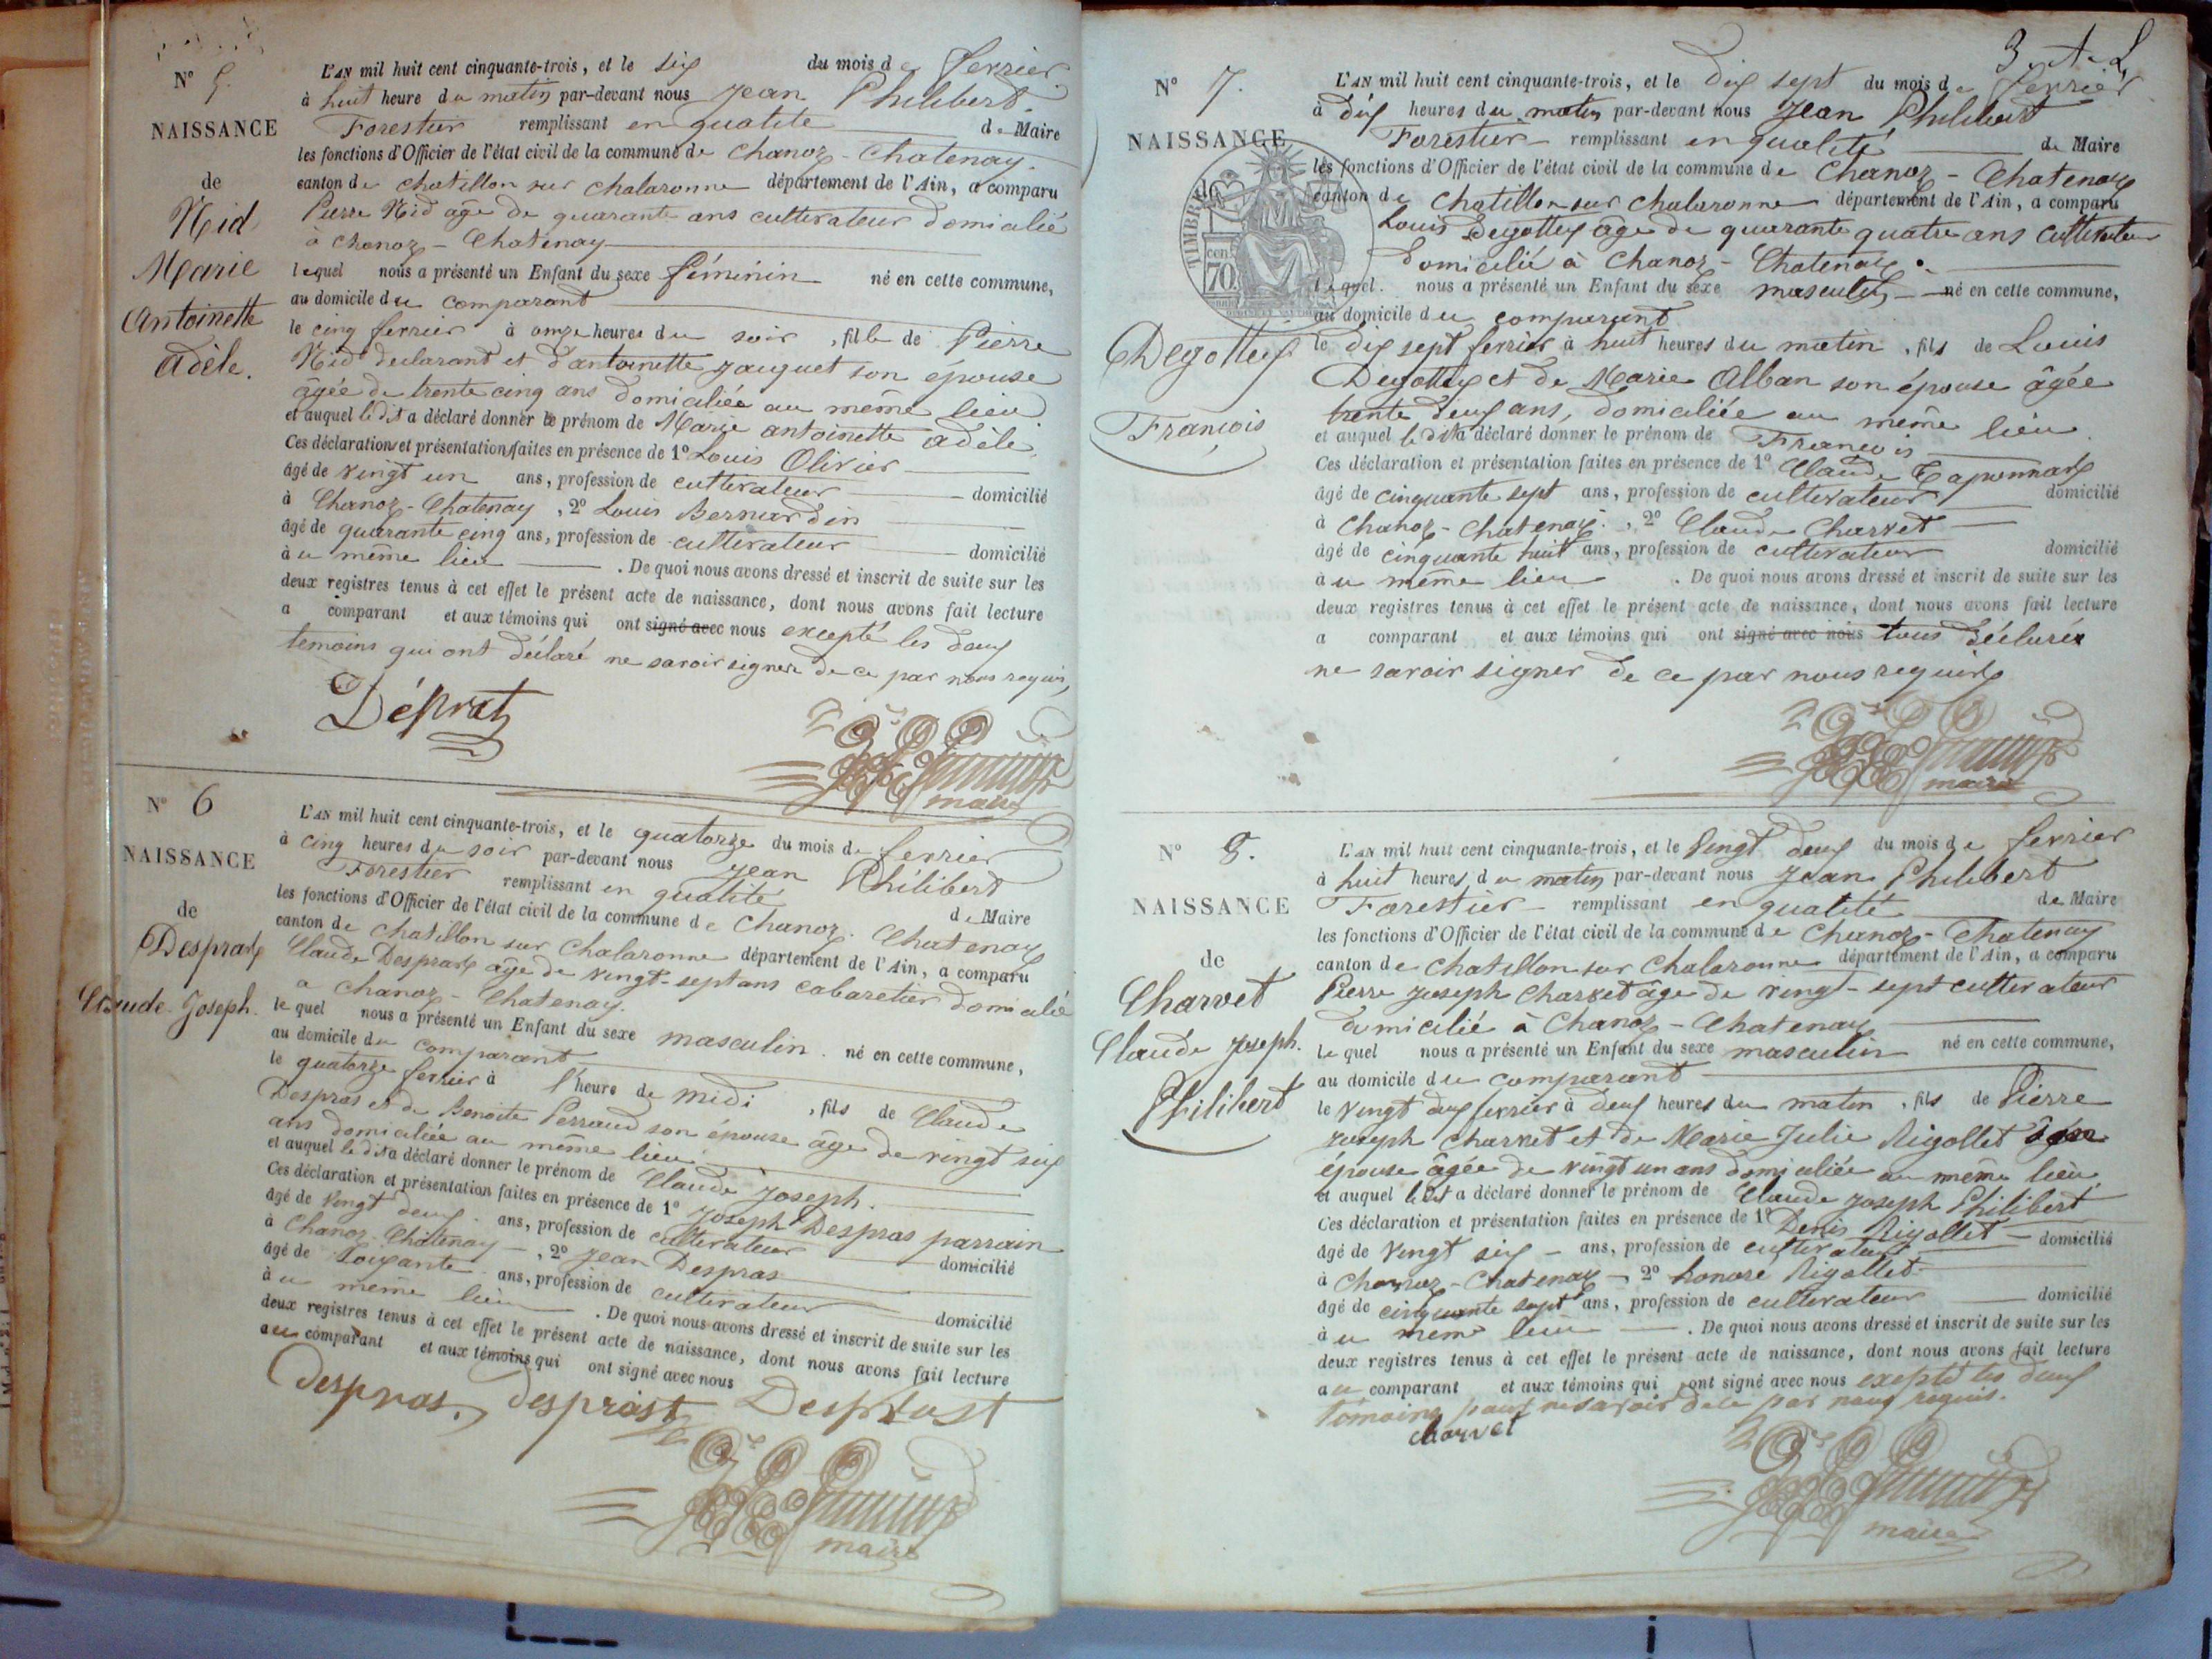 N° 5.
NAISSANCE
de
Nid
Marie
Antoinette
Adèle.
L'AN mil huit cent cinquante-trois, et le six du mois de fevrier
à huit heure du matin par-devant nous Jean Philibert
Forestier remplissant en qualité de Maire
les fonctions d'Officier de l'état civil de la commune de Chanoz-Chatenay
canton de chatillon sur chalaronne département de l'Ain, a comparu
Pierre Nid âge de quarante ans cultivateur domicilié
à chanoz-Chatenay
lequel nous a présenté un Enfant du sexe féminin né en cette commune,
au domicile du comparant
le cinq fevrier à onze heures du soir, fille de Pierre
Nid declarant et d'antoinette Jauquet son épouse
âgée de trente cinq ans domiciliée au même lieu
et auquel ledit a déclaré donner le prénom de Marie antoinette adèle
Ces déclaration et présentation faites en présence de 1° Louis Olivier
âgé de vingt un ans, profession de cultivateur domicilié
à Chanoz-Chatenay, 2° Louis Bernardin
âgé de quarante cinq ans, profession de cultivateur domicilié
au même lieu. De quoi nous avons dressé et inscrit de suite sur les
deux registres tenus à cet effet le présent acte de naissance, dont nous avons fait lecture
a comparant et aux témoins qui ont signé avec nous excepté les deux
temoins qui ont déclaré ne savoir signer de ce par nous requis,
Déprat
maire
N° 6
NAISSANCE
de
Desprats
Claude-Joseph.
L'AN mil huit cent cinquante-trois, et le quatorze du mois de fevrier
à cinq heures du soir par-devant nous Jean Philibert
Forestier remplissant en qualité de Maire
les fonctions d'Officier de l'état civil de la commune de Chanoz-Chatenay
canton de chatillon sur Chalaronne département de l'Ain, a comparu
Claude Desprats âge de vingt-sept ans cabaretier domicilié
a chanoz-Chatenay.
lequel nous a présenté un Enfant du sexe masculin. né en cette commune,
au domicile du comparant
le quatorze fevrier à l'heure de midi, fils de Claude
Despras et de Benoite Perraud son épouse âge de vingt six
ans domiciliée au même lieu
et auquel ledit a déclaré donner le prénom de Claude Joseph.
Ces déclaration et présentation faites en présence de 1° Joseph Despras parrain
âgé de vingt deux ans, profession de cultivateur domicilié
à Chanoz-Chatenay, 2° Jean Despras
âgé de soixante ans, profession de cultivateur domicilié
au même lieu. De quoi nous avons dressé et inscrit de suite sur les
deux registres tenus à cet effet le présent acte de naissance, dont nous avons fait lecture
au comparant et aux témoins qui ont signé avec nous
Despras. desprast Desprast
maire
N° 7.
NAISSANCE
TIMBRE
70
cen
Degottex
François
L'AN mil huit cent cinquante-trois, et le dix sept du mois de fevrier
à dix heures du matin par-devant nous Jean Philibert
Forestier remplissant en qualité de Maire
les fonctions d'Officier de l'état civil de la commune de Chanoz-Chatenay
canton de Chatillon sur chalaronne département de l'Ain, a comparu
Louis Degottex âge de quarante quatre ans cultivateur
domicilié à Chanoz-Chatenay.
lequel. nous a présenté un Enfant du sexe masculin né en cette commune,
au domicile du comparant
le dix sept fevrier à huit heures du matin, fils de Louis
Degottex et de Marie Alban son épouse âgée
trente deux ans, domiciliée au même lieu.
et auquel ledit a déclaré donner le prénom de François
Ces déclaration et présentation faites en présence de 1° Claude
âgé de cinquante sept ans, profession de cultivateur domicilié
à Chanoz-Chatenay, 2° Claude Charvet
âgé de cinquante huit ans, profession de cultivateur domicilié
au même lieu. De quoi nous avons dressé et inscrit de suite sur les
deux registres tenus à cet effet le présent acte de naissance, dont nous avons fait lecture
a comparant et aux témoins qui ont signé avec nous tous déclarés
ne savoir signer de ce par nous requis
maire
N° 8.
NAISSANCE
de
Charvet
Claude Joseph.
Philibert
L'AN mil huit cent cinquante-trois, et le Vingt deux du mois de fevrier
à huit heures du matin par-devant nous Jean Philibert
Forestier remplissant en qualité de Maire
les fonctions d'Officier de l'état civil de la commune de Chanoz-Chatenay
canton de chatillon sur Chalaronne département de l'Ain, a comparu
Pierre Joseph Charvet âge de vingt-sept cultivateur
domicilié à Chanoz-Chatenay
lequel nous a présenté un Enfant du sexe masculin né en cette commune,
au domicile du comparant
le vingt deux fevrier à deux heures du matin, fils de Pierre
Joseph Charvet et de Marie Julie Rigollet son
épouse âgée de vingt un ans domiciliée au même lieu
et auquel ledit a déclaré donner le prénom de Claude Joseph Philibert
Ces déclaration et présentation faites en présence de 1° Denis Rigollet
âgé de vingt six ans, profession de cultivateur domicilié
à Chanoz-Chatenay, 2° honoré Rigollet
âgé de cinquante sept ans, profession de cultivateur domicilié
au même lieu. De quoi nous avons dressé et inscrit de suite sur les
deux registres tenus à cet effet le présent acte de naissance, dont nous avons fait lecture
au comparant et aux témoins qui ont signé avec nous excepté les deux
témoins pour ne savoir de ce par nous requis.
charvet
maire